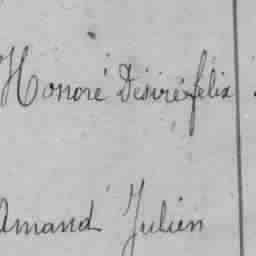 Honoré Désiré félix
Amand Julien